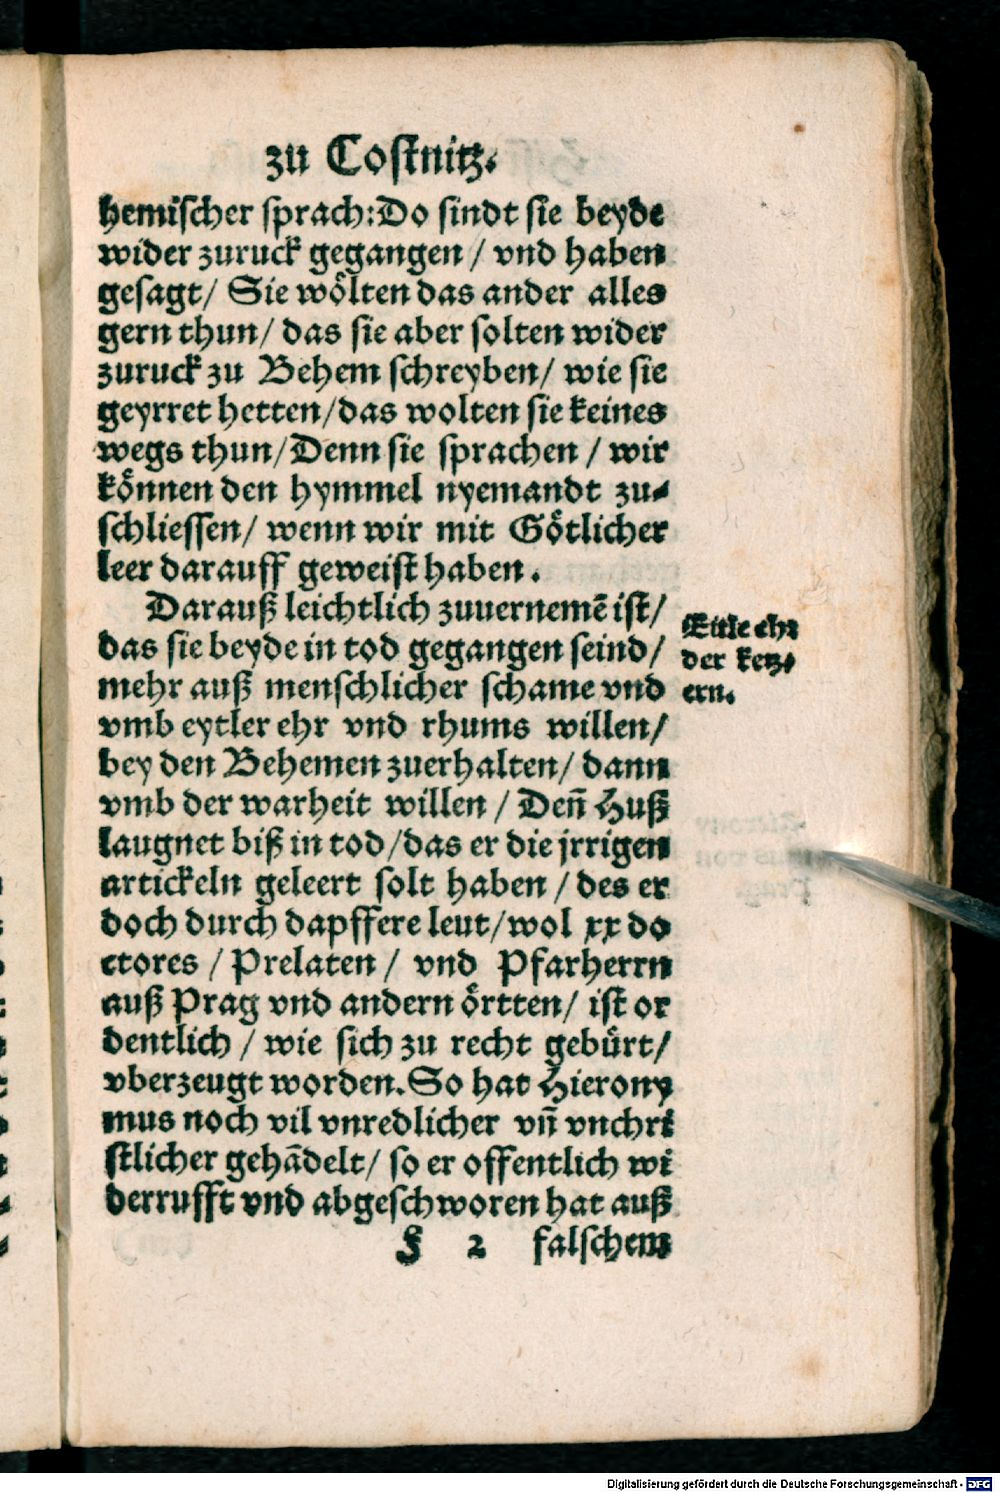 zu Coſtnitz.
hemiſcher ſprach: Do ſindt ſie beyde
wider zuruck gegangen / vnd haben
geſagt / Sie woͤlten das ander alles
gern thun / das ſie aber ſolten wider
zuruck zu Behem ſchreyben / wie ſie
geyrret hetten / das wolten ſie keines
wegs thun / Denn ſie ſprachen / wir
koͤnnen den hymmel nyemandt zu⸗
ſchlieſſen / wenn wir mit Goͤtlicher
leer darauff geweiſt haben.
Darauß leichtlich zuuernemē iſt /
das ſie beyde in tod gegangen ſeind /
mehr auß menſchlicher ſchame vnd
vmb eytler ehr vnd rhums willen /
bey den Behemen zuerhalten / dann
vmb der warheit willen / Deñ Huß
laugnet biß in tod / das er die jrrigen
artickeln geleert ſolt haben / des er
doch durch dapffere leut / wol xx do
ctores / Prelaten / vnd Pfarherrn
auß Prag vnd andern oͤrtten / iſt or
dentlich / wie ſich zu recht gebuͤrt /
vberzeugt worden. So hat Hierony
mus noch vil vnredlicher vñ vnchri
ſtlicher gehādelt / ſo er offentlich wi
derrufft vnd abgeſchworen hat auß
Eitle ehr
der ketz⸗
ern.
§ 2 falſchem
Digitalisierung gefördert durch die Deutsche Forschungsgemeinschaft - DFG